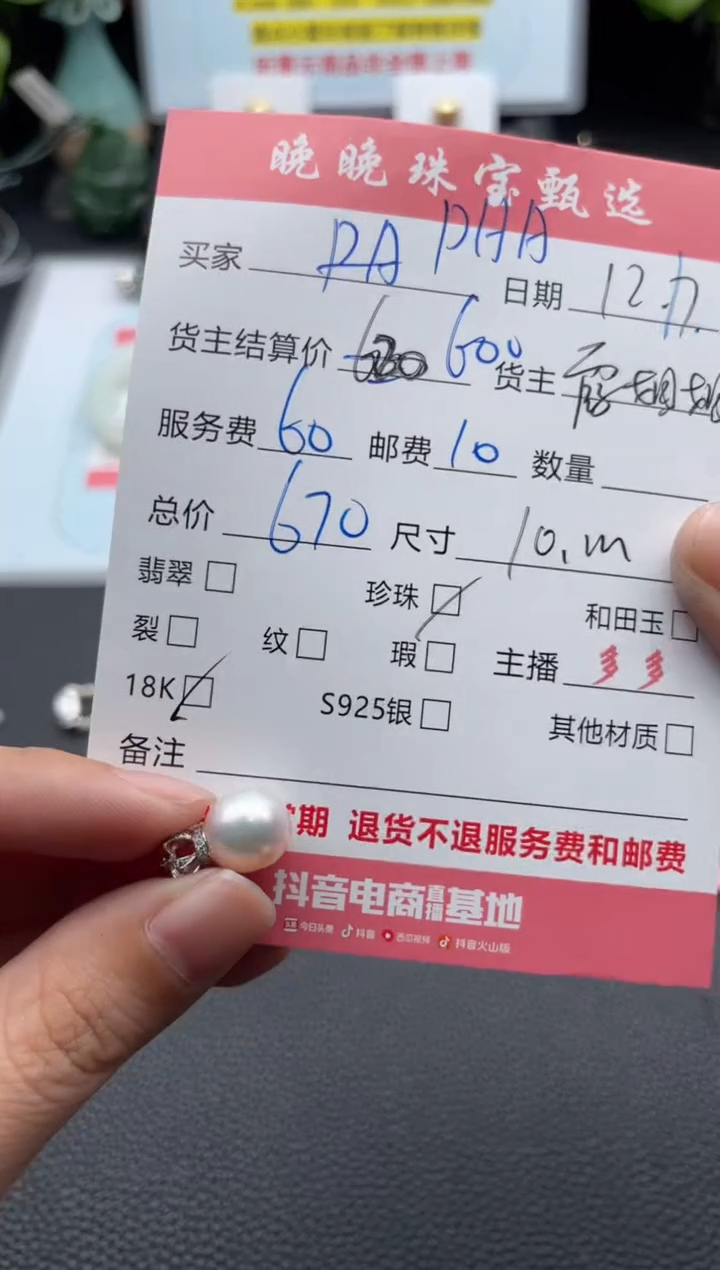 晚晚珠宝甄选
买家 RA PHA 日期 12.7.
货主结算价 600 货主
服务费 60 邮费 10 数量
总价 670 尺寸 10.m
翡翠 珍珠 和田玉
裂 纹 瑕 主播 多多
18K S925银 其他材质
备注
期 退货不退服务费和邮费
抖音电商直播基地
头条 今日头条 抖音 西瓜视频 抖音火山版